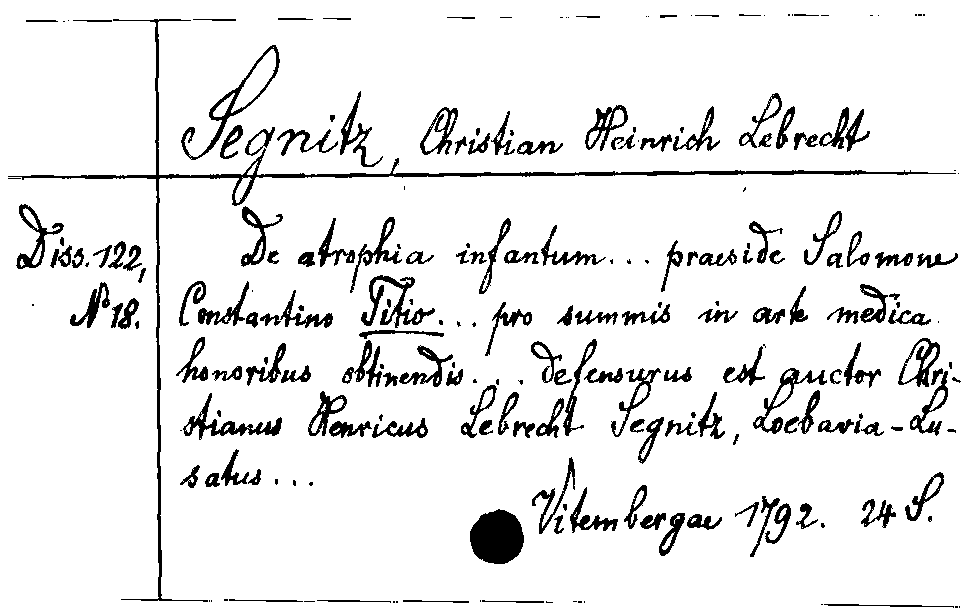 Segnitz, Christian Heinrich Lebrecht
Diss. 122,
No 18.
De atrophia infantum... praeside Salomone
Constantino Titio... pro summis in arte medica
honoribus obtinendis... defensurus est auctor Chri-
stianus Henricus Lebrecht Segnitz, Loebavia-Lu-
satus...
Vitembergae 1792. 24 S.